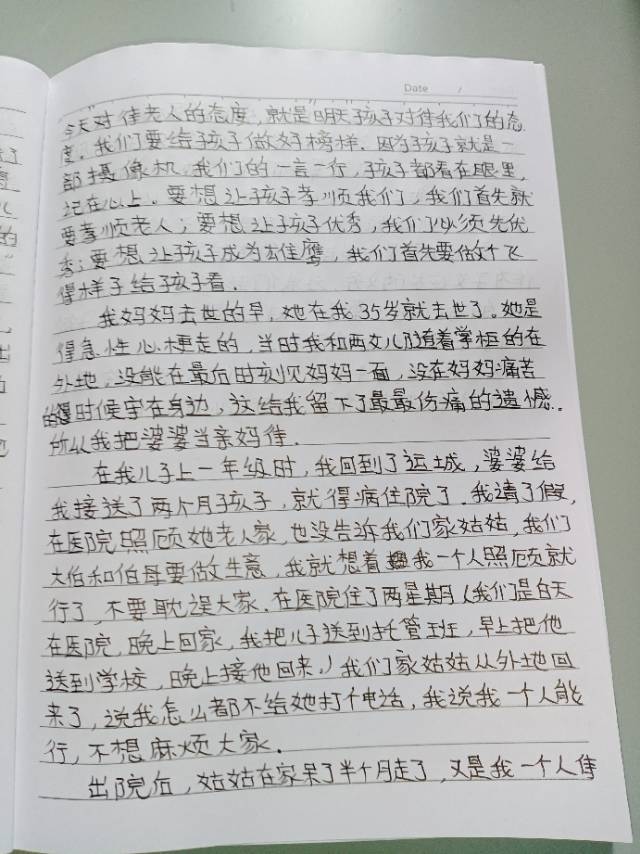 Date /
今天对待老人的态度,就是明天孩子对待我们的态
度。我们要给孩子做好榜样。因为孩子就是一
部摄像机,我们的一言一行,孩子都看在眼里,
记在心上。要想让孩子孝顺我们,我们首先就
要孝顺老人;要想让孩子优秀,我们必须先优
秀;要想让孩子成为雄鹰,我们首先要做个飞
得样子给孩子看。
我妈妈去世的早,她在我35岁就去世了。她是
得急性心梗走的,当时我和两女儿随着掌柜的在
外地,没能在最后时刻见妈妈一面,没在妈妈痛苦
的时候守在身边,这给我留下了最最伤痛的遗憾。
所以我把婆婆当亲妈待。
在我儿子上一年级时,我回到了运城,婆婆给
我接送了两个月孩子,就得病住院了。我请了假,
在医院照顾她老人家,也没告诉我们家姑姑,我们
大伯和伯母要做生意,我就想着我一个人照顾就
行了,不要耽误大家。在医院住了两星期(我们是白天
在医院,晚上回家,我把儿子送到托管班,早上把他
送到学校,晚上接他回来。)我们家姑姑从外地回
来了,说我怎么都不给她打个电话,我说我一个人能
行,不想麻烦大家。
出院后,姑姑在家呆了半个月走了,又是我一个人侍